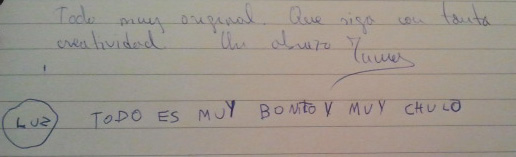 Todo muy original. Que siga con tanta
creatividad. Un abrazo
LUZ TODO ES MUY BONITO Y MUY CHULO